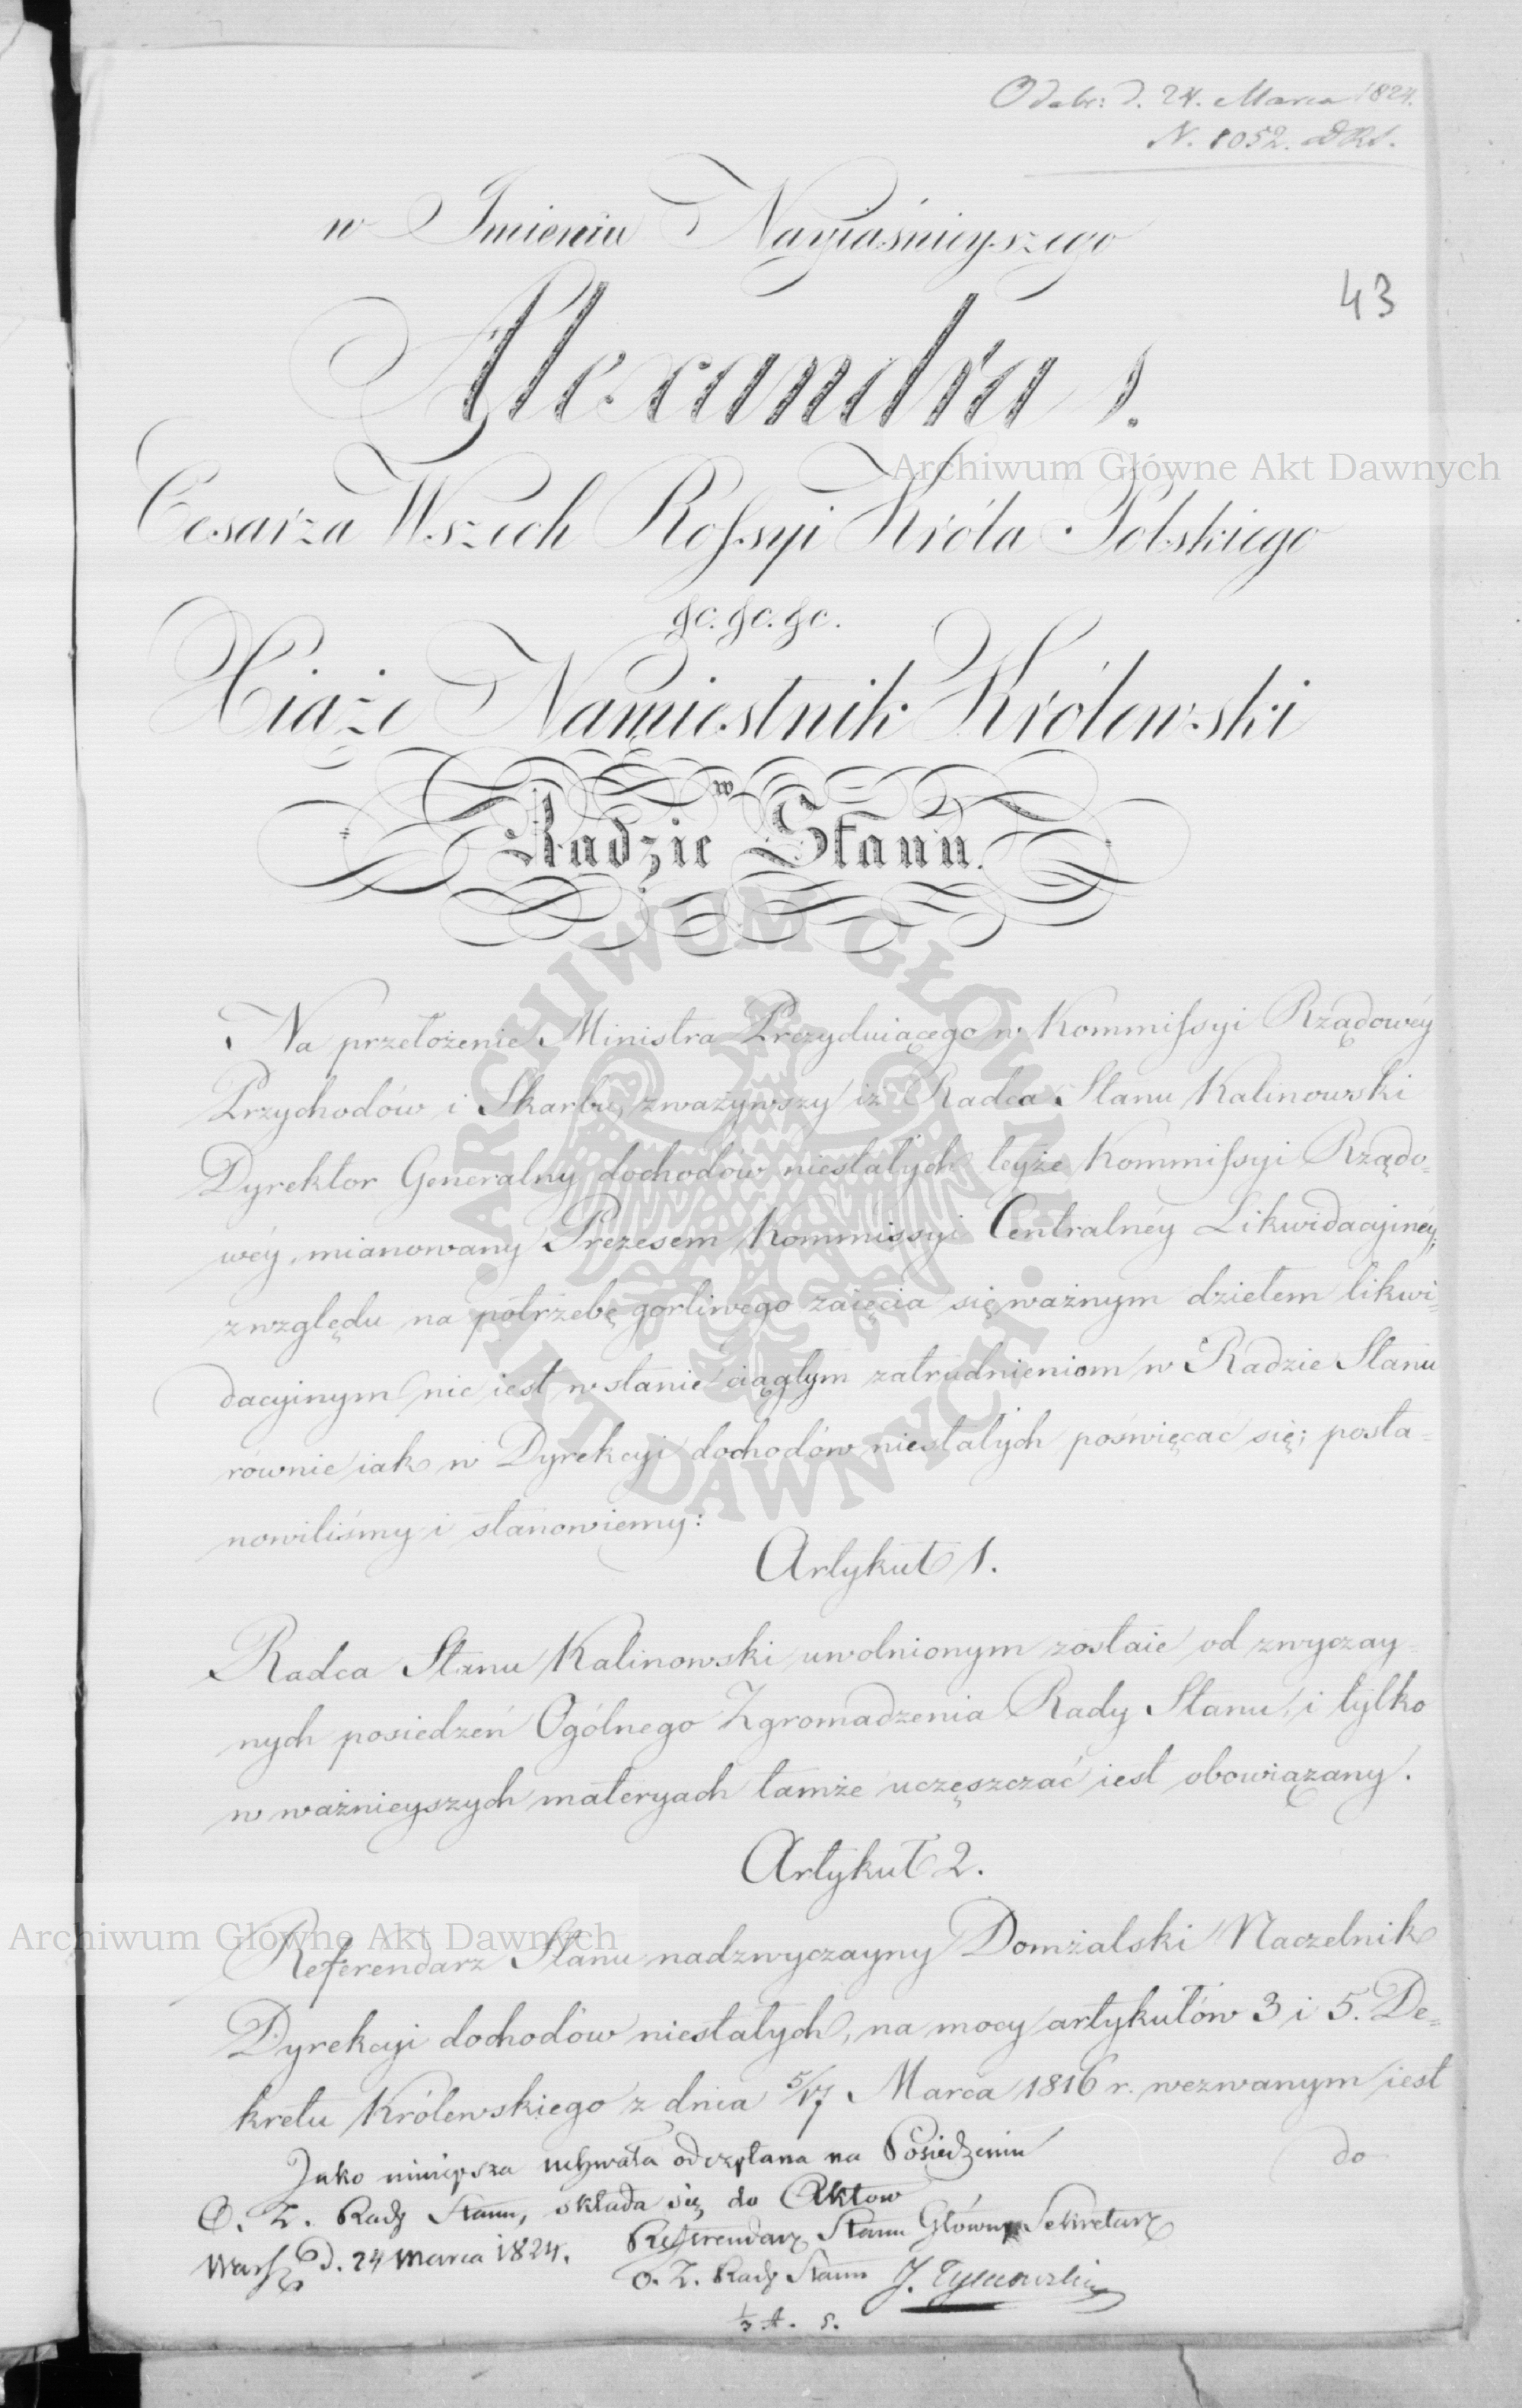 Odebr: d. 24. Marca 1824.
N. 1052. DRS.
43
w Imieniu Nayiaśnieyszego
Alexandra I.
Cesarza Wszech Rossyi Króla Polskiego
&c. &c. &c.
Xiąże Namiestnik Królewski
w
Radzie Stanu.
Na przełożenie Ministra Prezyduiącego w Kommissyi Rządowéy
Przychodów i Skarbu, zważywszy iż Radca Stanu Kalinowski
Dyrektor Generalny dochodów niestałych teyże Kommissyi Rządo=
wéy, mianowany Prezesem Kommissyi Centralnéy Likwidacyinéy,
z względu na potrzebę gorliwego zaięcia się ważnym dziełem likwi=
dacyinym nie iest w stanie ciągłym zatrudnieniom w Radzie Stanu
równie iak w Dyrekcyi dochodów niestałych poświęcac się; posta=
nowiliśmy i stanowiemy:
Artykuł 1.
Radca Stanu Kalinowski uwolnionym zostaie od zwyczay=
nych posiedzeń Ogólnego Zgromadzenia Rady Stanu, i tylko
w ważnieyszych materyach tamże uczęszczać iest obowiązany.
Artykuł 2.
Referendarz Stanu nadzwyczayny Domżalski Naczelnik
Dyrekcyi dochodów niestałych, na mocy artykułów 3 i 5. De=
kretu Królewskiego z dnia 5/17 Marca 1816 r. wezwanym iest
do
Jako ninieysza uchwała odczytana na Posiedzeniu
O. Z. Rady Stanu, składa się do Aktow
Warsz. d. 24 Marca 1824. Referendarz Stanu Główny Sekretarz
O. Z. Rady Stanu J. Tymowski
Archiwum Główne Akt Dawnych
ARCHIWUM GŁÓWNE · AKT DAWNYCH ·
Archiwum Główne Akt Dawnych